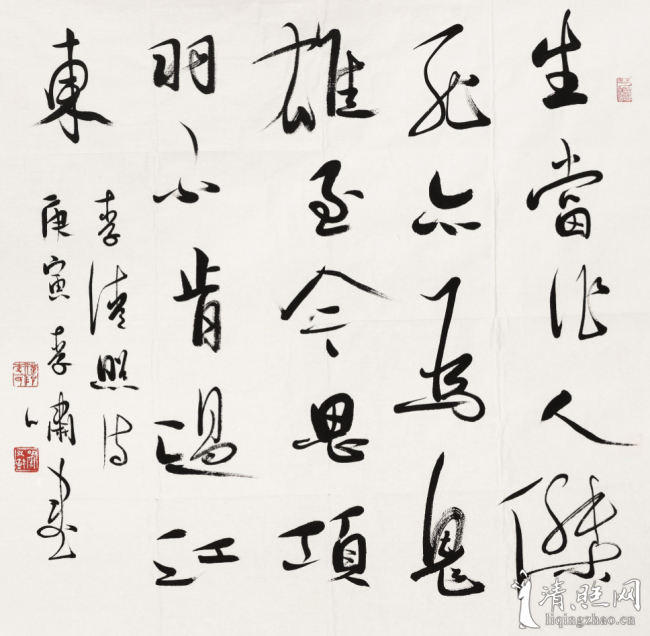 生當作人傑
死亦為鬼
雄至今思項
羽不肯過江
東
李清照詩
庚寅李嘯書
清照网
liqingzhao.cn